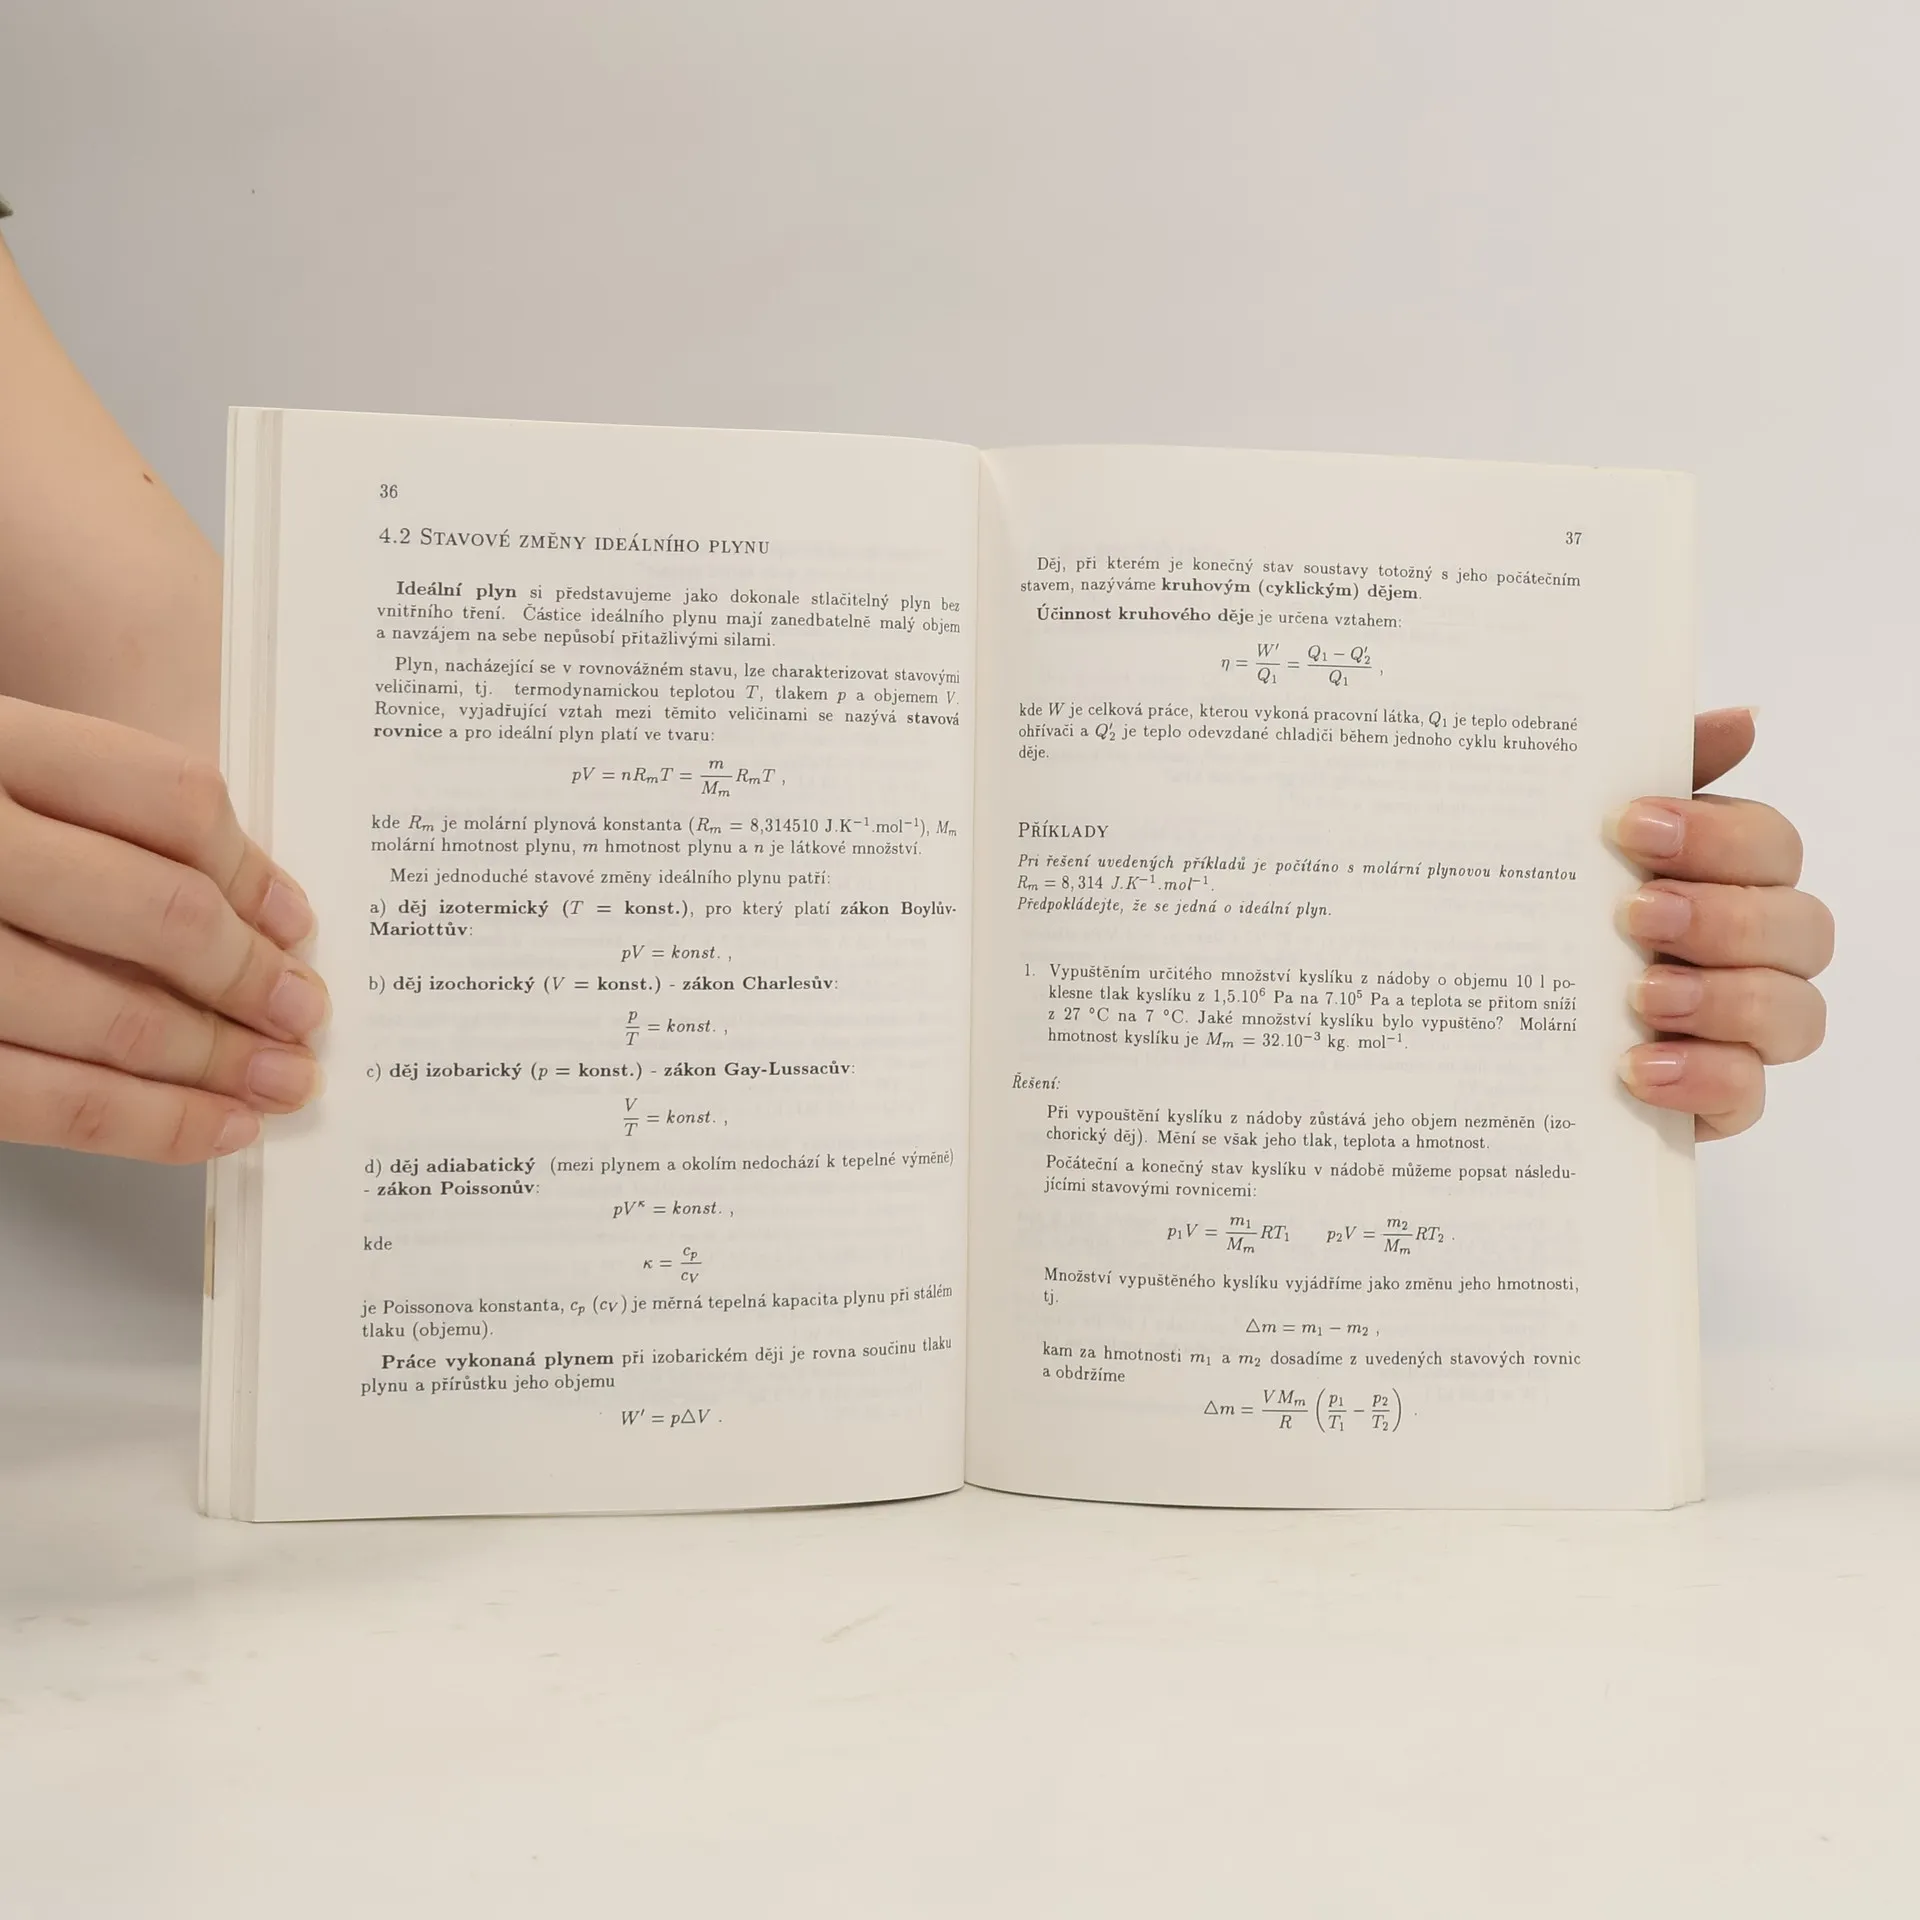 36
4.2 STAVOVÉ ZMĚNY IDEÁLNÍHO PLYNU
Ideální plyn si představujeme jako dokonale stlačitelný plyn bez
vnitřního tření. Částice ideálního plynu mají zanedbatelně malý objem
a navzájem na sebe nepůsobí přitažlivými silami.
Plyn, nacházející se v rovnovážném stavu, lze charakterizovat stavovými
veličinami, tj. termodynamickou teplotou T, tlakem p a objemem V.
Rovnice, vyjadřující vztah mezi těmito veličinami se nazývá stavová
rovnice a pro ideální plyn platí ve tvaru:
pV = nR_mT = m/M_m R_mT ,
kde R_m je molární plynová konstanta (R_m = 8,314510 J.K⁻¹.mol⁻¹), M_m
molární hmotnost plynu, m hmotnost plynu a n je látkové množství.
Mezi jednoduché stavové změny ideálního plynu patří:
a) děj izotermický (T = konst.), pro který platí zákon Boylův-
Mariottův:
pV = konst. ,
b) děj izochorický (V = konst.) - zákon Charlesův:
p/T = konst. ,
c) děj izobarický (p = konst.) - zákon Gay-Lussacův:
V/T = konst. ,
d) děj adiabatický (mezi plynem a okolím nedochází k tepelné výměně)
- zákon Poissonův:
pV^κ = konst. ,
kde
κ = c_p/c_V
je Poissonova konstanta, c_p (c_V) je měrná tepelná kapacita plynu při stálém
tlaku (objemu).
Práce vykonaná plynem při izobarickém ději je rovna součinu tlaku
plynu a přírůstku jeho objemu
W′ = p△V .
37
Děj, při kterém je konečný stav soustavy totožný s jeho počátečním
stavem, nazýváme kruhovým (cyklickým) dějem.
Účinnost kruhového děje je určena vztahem:
η = W′/Q₁ = (Q₁ − Q′₂)/Q₁ ,
kde W je celková práce, kterou vykoná pracovní látka, Q₁ je teplo odebrané
ohřívači a Q′₂ je teplo odevzdané chladiči během jednoho cyklu kruhového
děje.
PŘÍKLADY
Pri řešení uvedených příkladů je počítáno s molární plynovou konstantou
R_m = 8,314 J.K⁻¹.mol⁻¹.
Předpokládejte, že se jedná o ideální plyn.
1. Vypuštěním určitého množství kyslíku z nádoby o objemu 10 l po-
klesne tlak kyslíku z 1,5.10⁶ Pa na 7.10⁵ Pa a teplota se přitom sníží
z 27 °C na 7 °C. Jaké množství kyslíku bylo vypuštěno? Molární
hmotnost kyslíku je M_m = 32.10⁻³ kg. mol⁻¹.
Řešení:
Při vypouštění kyslíku z nádoby zůstává jeho objem nezměněn (izo-
chorický děj). Mění se však jeho tlak, teplota a hmotnost.
Počáteční a konečný stav kyslíku v nádobě můžeme popsat následu-
jícími stavovými rovnicemi:
p₁V = m₁/M_m RT₁ p₂V = m₂/M_m RT₂ .
Množství vypuštěného kyslíku vyjádříme jako změnu jeho hmotnosti,
tj.
△m = m₁ − m₂ ,
kam za hmotnosti m₁ a m₂ dosadíme z uvedených stavových rovnic
a obdržíme
△m = VM_m/R (p₁/T₁ − p₂/T₂) .